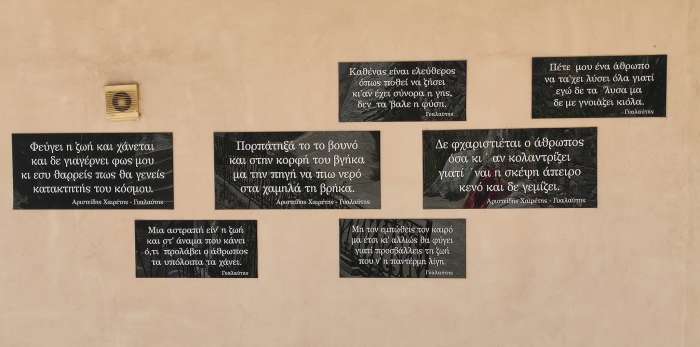 Καθένας είναι ελεύθερος
όπως ποθεί να ζήσει
κι'αν έχει σύνορα η γης,
δεν τα 'βαλε η φύση.
Γυαλαύτης
Πέτε μου ένα άθρωπο
να τα'χει λύσει όλα γιατί
εγώ δε τα 'λυσα μα
δε με γνοιάζει κιόλα.
Γυαλαύτης
Φεύγει η ζωή και χάνεται
και δε γιαγέρνει φως μου
κι εσυ θαρρείς πως θα γενείς
κατακτητής του κόσμου.
Αριστείδης Χαιρέτης - Γυαλαύτης
Πορπάτηξά το το βουνό
και στην κορφή του βγήκα
μα την πηγή να πιω νερό
στα χαμηλά τη βρήκα.
Αριστείδης Χαιρέτης - Γυαλαύτης
Δε φχαριστιέται ο άθρωπος
όσα κι' αν κολαντρίζει
γιατί 'ναι η σκέψη άπειρο
κενό και δε γεμίζει.
Αριστείδης Χαιρέτης - Γυαλαύτης
Μια αστραπή είν' η ζωή
και στ' άναμα που κάνει
ό,τι προλάβει ο άθρωπος
τα υπόλοιπα τα χάνει.
Γυαλαύτης
Μη τον εμπώθεις τον καιρό
μα έτσι κι' αλλιώς θα φύγει
γιατί προσβάλλεις τη ζωή
που ν' η παντέρμη λίγη.
Γυαλαύτης